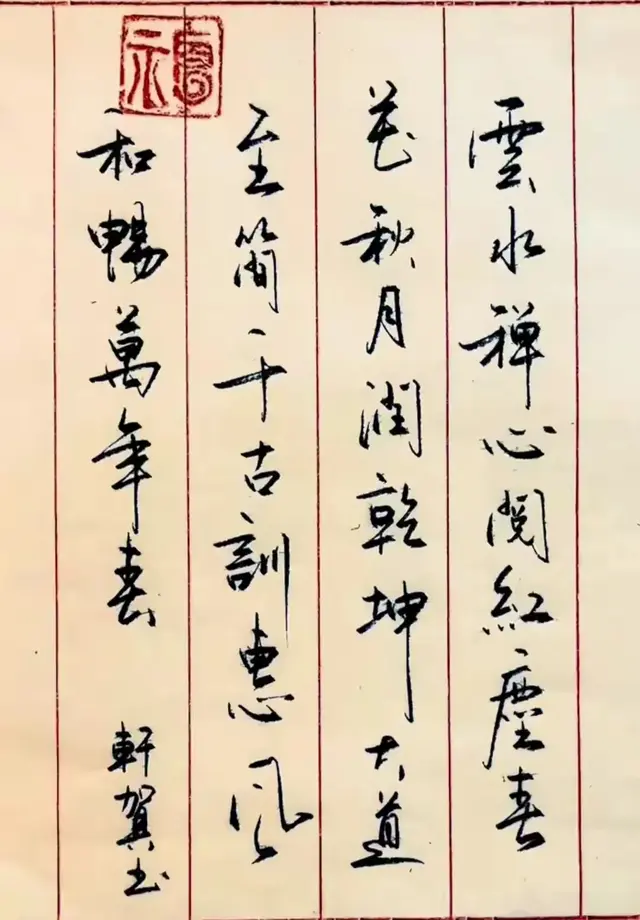 雲水禅心閲紅塵春
花秋月潤乾坤大道
至簡千古訓惠風
和暢萬年春
軒賀書